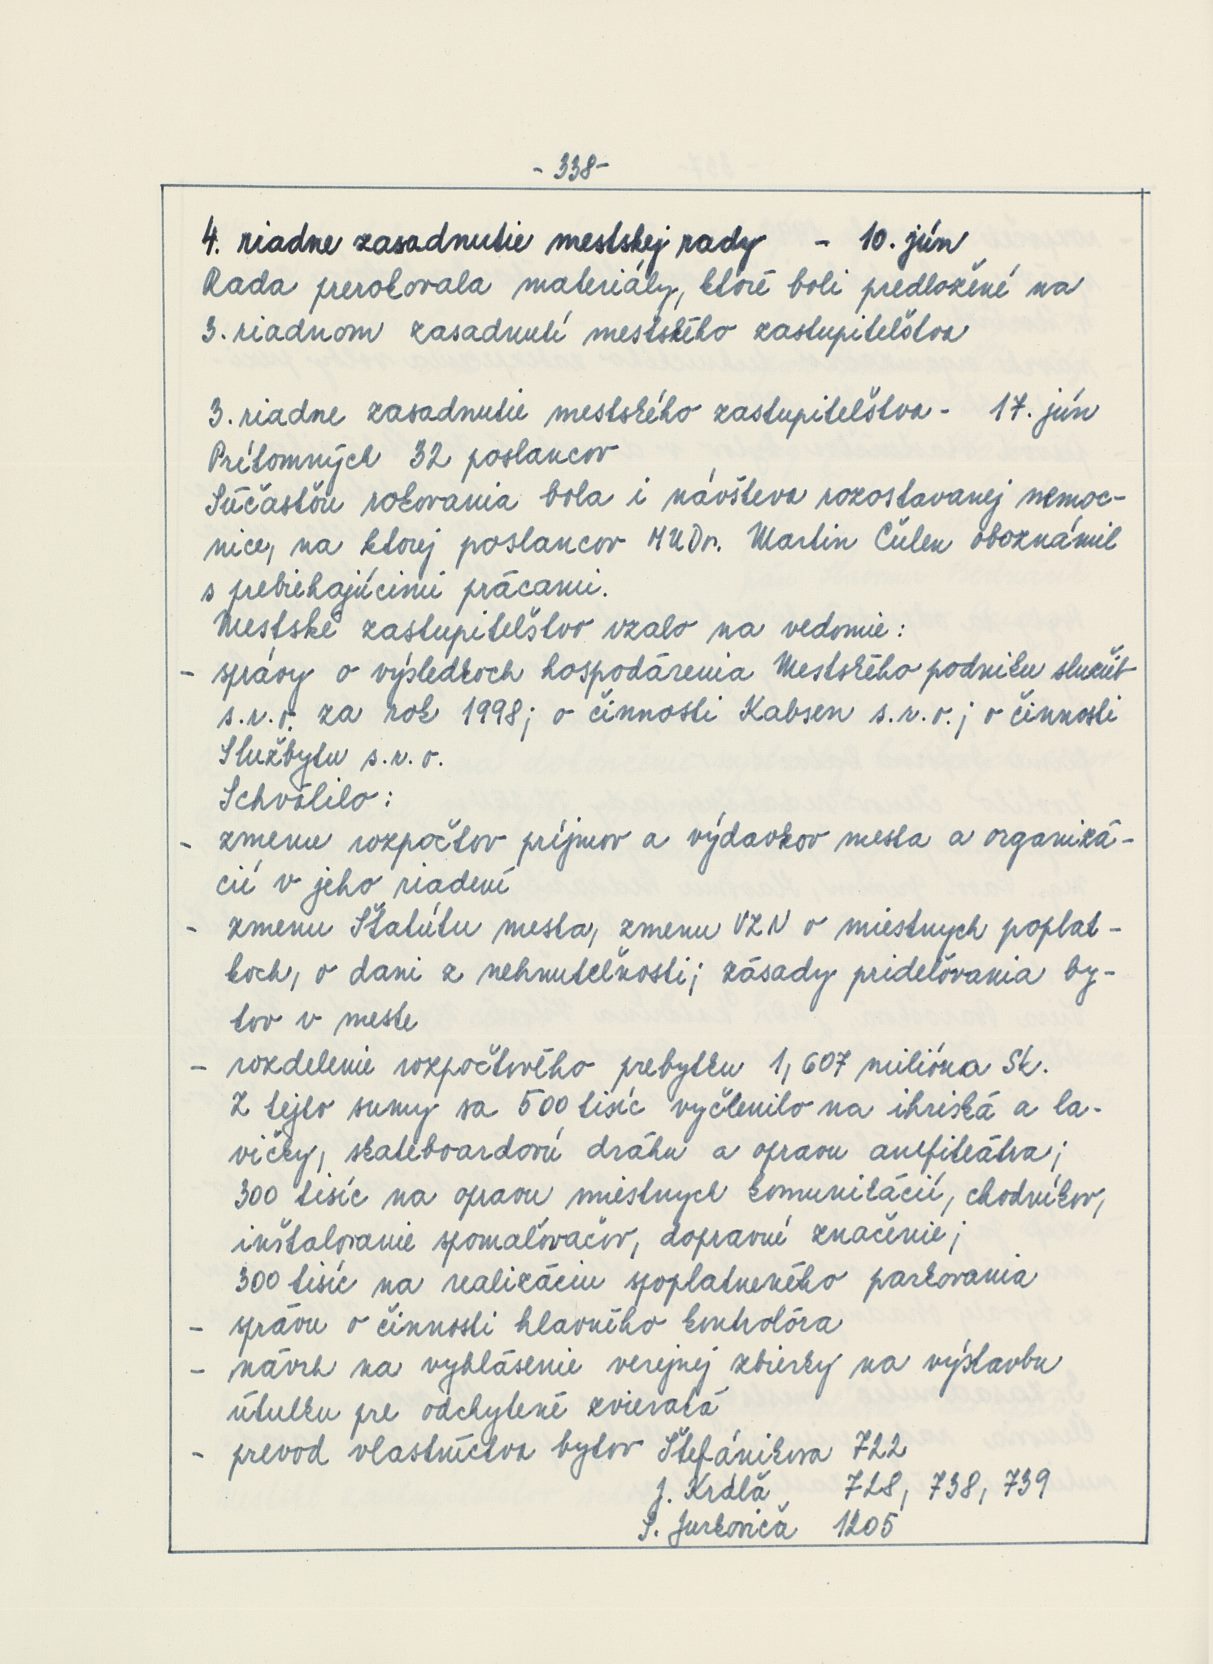 - 338 -
4. riadne zasadnutie mestskej rady - 10. jún
Rada prerokovala materiály, ktoré boli predložené na
3. riadnom zasadnutí mestského zastupiteľstva
3. riadne zasadnutie mestského zastupiteľstva - 17. jún
Prítomných 32 poslancov
Súčasťou rokovania bola i návšteva rozostavanej nemoc-
nice, na ktorej poslancov MUDr. Martin Čulen oboznámil
s prebiehajúcimi prácami.
Mestské zastupiteľstvo vzalo na vedomie:
- správy o výsledkoch hospodárenia Mestského podniku služieb
s.r.o. za rok 1998; o činnosti Kabsen s.r.o.; o činnosti
Službytu s.r.o.
Schválilo:
- zmenu rozpočtov príjmov a výdavkov mesta a organizá-
cií v jeho riadení
- zmenu Štatútu mesta, zmenu VZN o miestnych poplat-
koch, o dani z nehnuteľnosti; zásady prideľovania by-
tov v meste
- rozdelenie rozpočtového prebytku 1,607 milióna Sk.
Z tejto sumy sa 500 tisíc vyčlenilo na ihriská a la-
vičky, skateboardovú dráhu a opravu amfiteátra;
300 tisíc na opravu miestnych komunikácií, chodníkov,
inštalovanie spomaľovačov, dopravné značenie;
300 tisíc na realizáciu spoplatneného parkovania
- správu o činnosti hlavného kontrolóra
- návrh na vyhlásenie verejnej zbierky na výstavbu
útulku pre odchytené zvieratá
- prevod vlastníctva bytov Štefánikova 722
J. Kráľa 728, 738, 739
S. Jurkoviča 1205